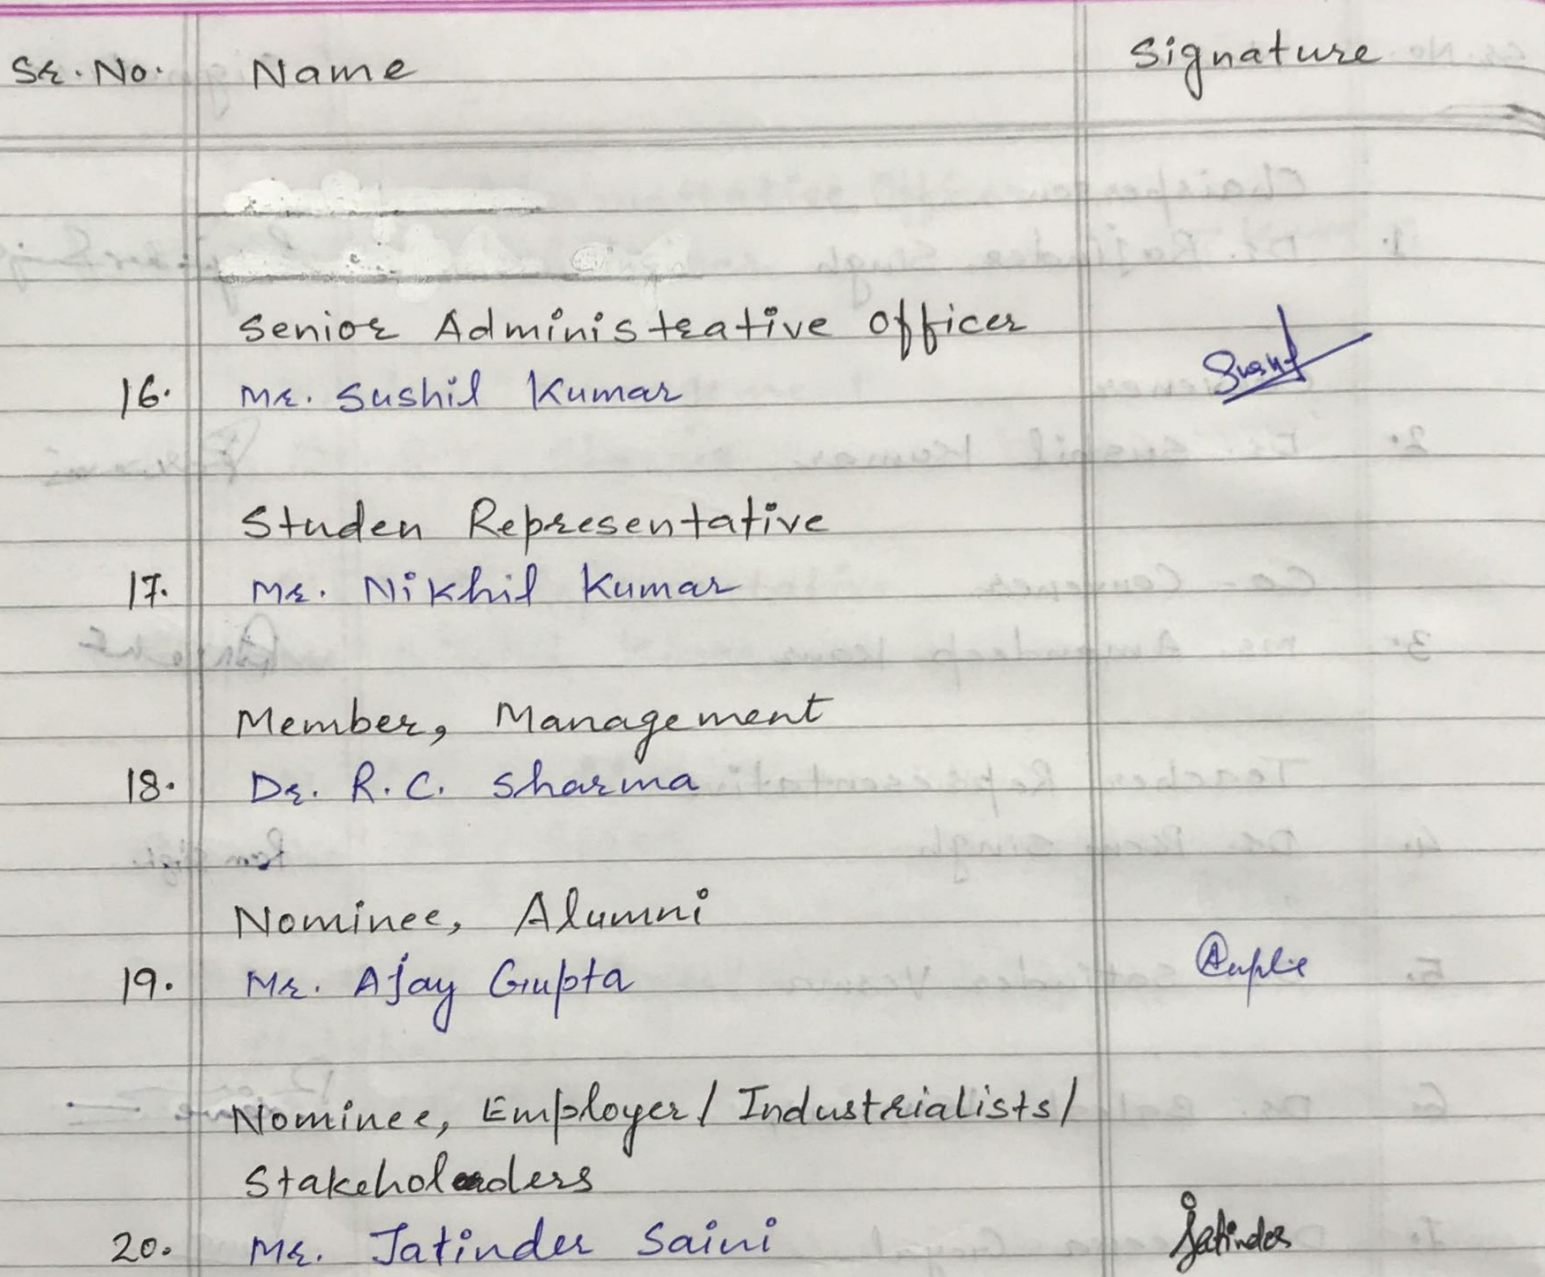 Sr. No. Name Signature
Senior Administrative Officer
16. Mr. Sushil Kumar
Studen Representative
17. Mr. Nikhil Kumar
Member, Management
18. Dr. R.C. Sharma
Nominee, Alumni
19. Mr. Ajay Gupta
Nominee, Employer/Industrialists/
Stakeholders
20. Mr. Jatinder Saini Jatinder